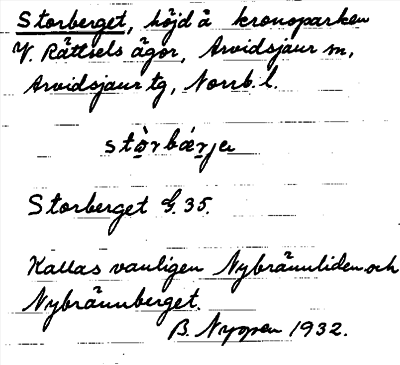 Storberget, höjd å kronoparken
V. Rättsels ägor, Arvidsjaur sn,
Arvidsjaur tg, Norrb. l.
Storberget G. 35.
Kallas vanligen Nybrännliden och
Nybrännberget.
B. Nygren 1932.